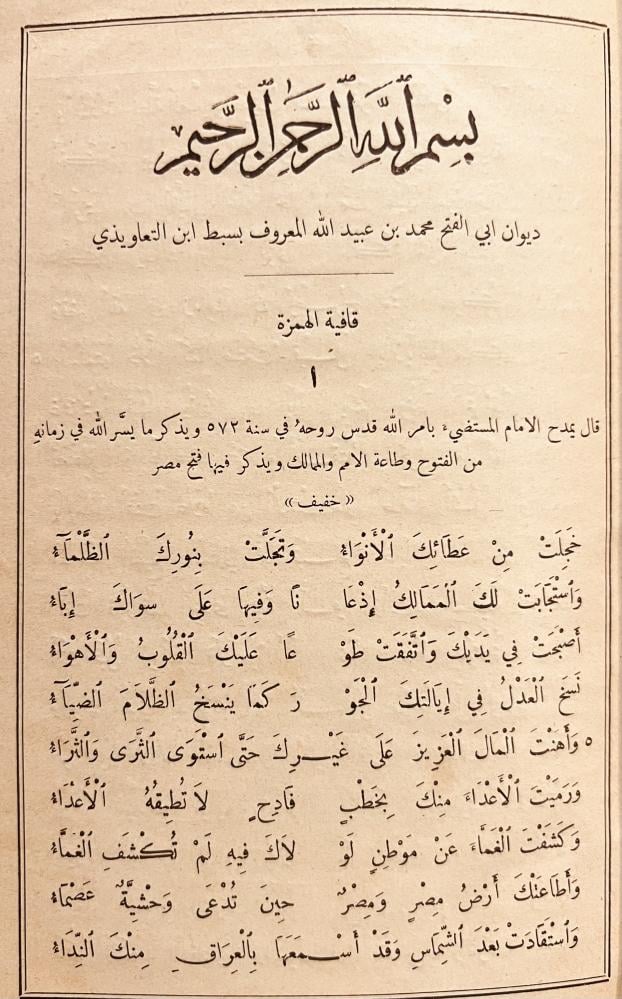 بِسْمِ ٱللَّهِ ٱلرَّحْمٰنِ ٱلرَّحِيمِ
ديوان ابي الفتح محمد بن عبيد الله المعروف بسبط ابن التعاويذي
قافية الهمزة
١
قال يمدح الامام المستضيء بامر الله قدس روحهُ في سنة ٥٧٢ ويذكر ما يسَّر الله في زمانهِ
من الفتوح وطاعة الامم والمالك ويذكر فيها فتح مصر
«خفيف»
خَجِلَتْ مِنْ عَطَائِكَ ٱلْأَنْوَاءُ وَتَجَلَّتْ بِنُورِكَ ٱلظَّلْمَآءُ
وَٱسْتَجَابَتْ لَكَ ٱلْمَمَالِكُ إِذْعَا نًا وَفِيهَا عَلَى سِوَاكَ إِبَاءُ
أَصْبَحَتْ فِي يَدَيْكَ وَٱتَّفَقَتْ طَوْ عًا عَلَيْكَ ٱلْقُلُوبُ وَٱلْأَهْوَاءُ
نَسَخَ ٱلْعَدْلُ فِي إِيَالَتِكَ ٱلْجَوْ رَ كَمَا يَنْسَخُ ٱلظَّلَامَ ٱلضِّيَآءُ
٥ وَأَهَنْتَ ٱلْمَالَ ٱلْعَزِيزَ عَلَى غَيْـرِكَ حَتَّى ٱسْتَوَى ٱلثَّرَى وَٱلثَّرَاءُ
وَرَمَيْتَ ٱلْأَعْدَاءَ مِنْكَ بِخَطْبٍ فَادِحٍ لَا تُطِيقُهُ ٱلْأَعْدَاءُ
وَكَشَفْتَ ٱلْغَمَّاءَ عَنْ مَوْطِنٍ لَوْ لَاكَ فِيهِ لَمْ تُكْشَفِ ٱلْغَمَّاءُ
وَأَطَاعَتْكَ أَرْضُ مِصْرٍ وَمِصْرٌ حِينَ تُدْعَى وَحْشِيَّةٌ عَصْمَآءُ
وَٱسْتَقَادَتْ بَعْدَ ٱلشِّمَاسِ وَقَدْ أَسْـمَعَهَا بِٱلْعِرَاقِ مِنْكَ ٱلنِّدَاءُ